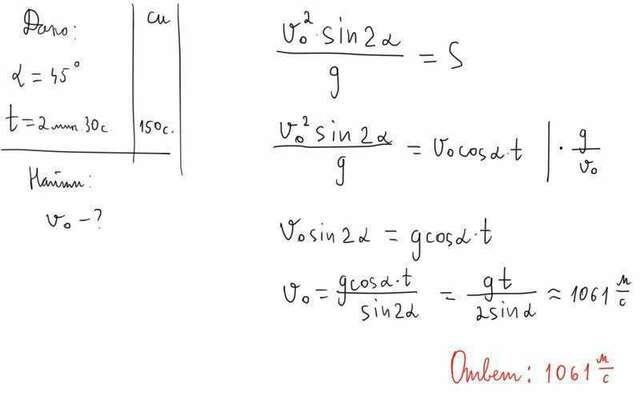 Дано:
си
α = 45°
t = 2 мин 30с.
150с.
Найти:
v₀ - ?
v₀² · sin2α / g = S
v₀² sin2α / g = v₀cosα · t | · g / v₀
v₀sin2α = gcosα · t
v₀ = gcosα · t / sin2α = gt / 2sinα ≈ 1061 м/с
Ответ: 1061 м/с